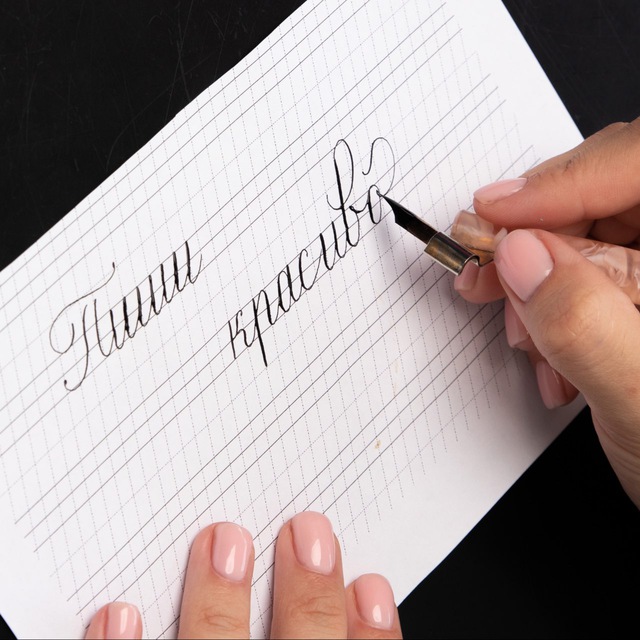 Пиши красиво